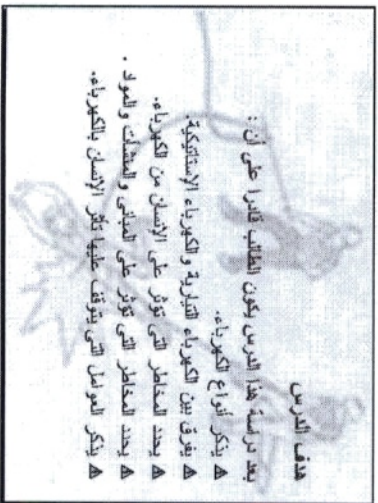 هدف الدرس
بعد دراسة هذا الدرس يكون الطالب قادرا على أن :
يذكر أنواع الكهرباء.
يفرق بين الكهرباء التيارية والكهرباء الإستاتيكية.
يحدد المخاطر التى تؤثر على الإنسان من الكهرباء.
يحدد المخاطر التى تؤثر على المبانى والمنشآت والمواد .
يذكر العوامل التى يتوقف عليها تأثر الإنسان بالكهرباء.